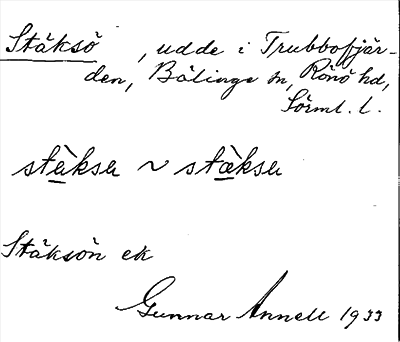 Stäksö, udde i Trobbofjär-
den, Bälinge sn, Rönö hd,
Sörml. l.
stɛ̀ksɯ ~ stæ̀ksɯ
Stäksön ek
Gunnar Annell 1933